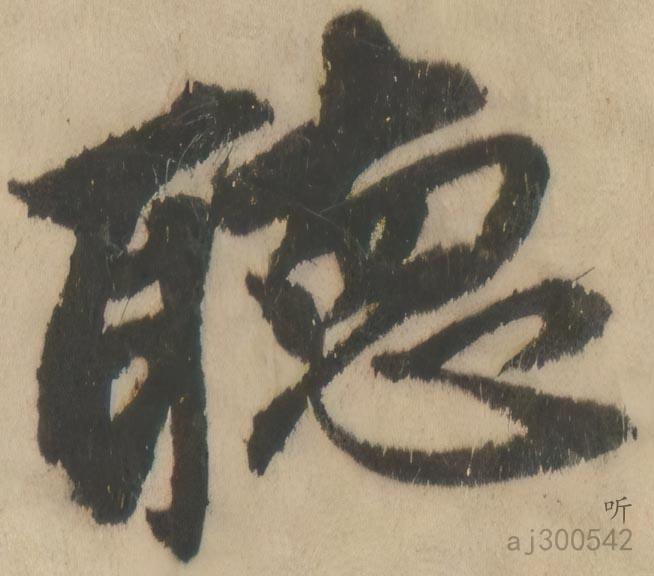 聽
听
aj300542